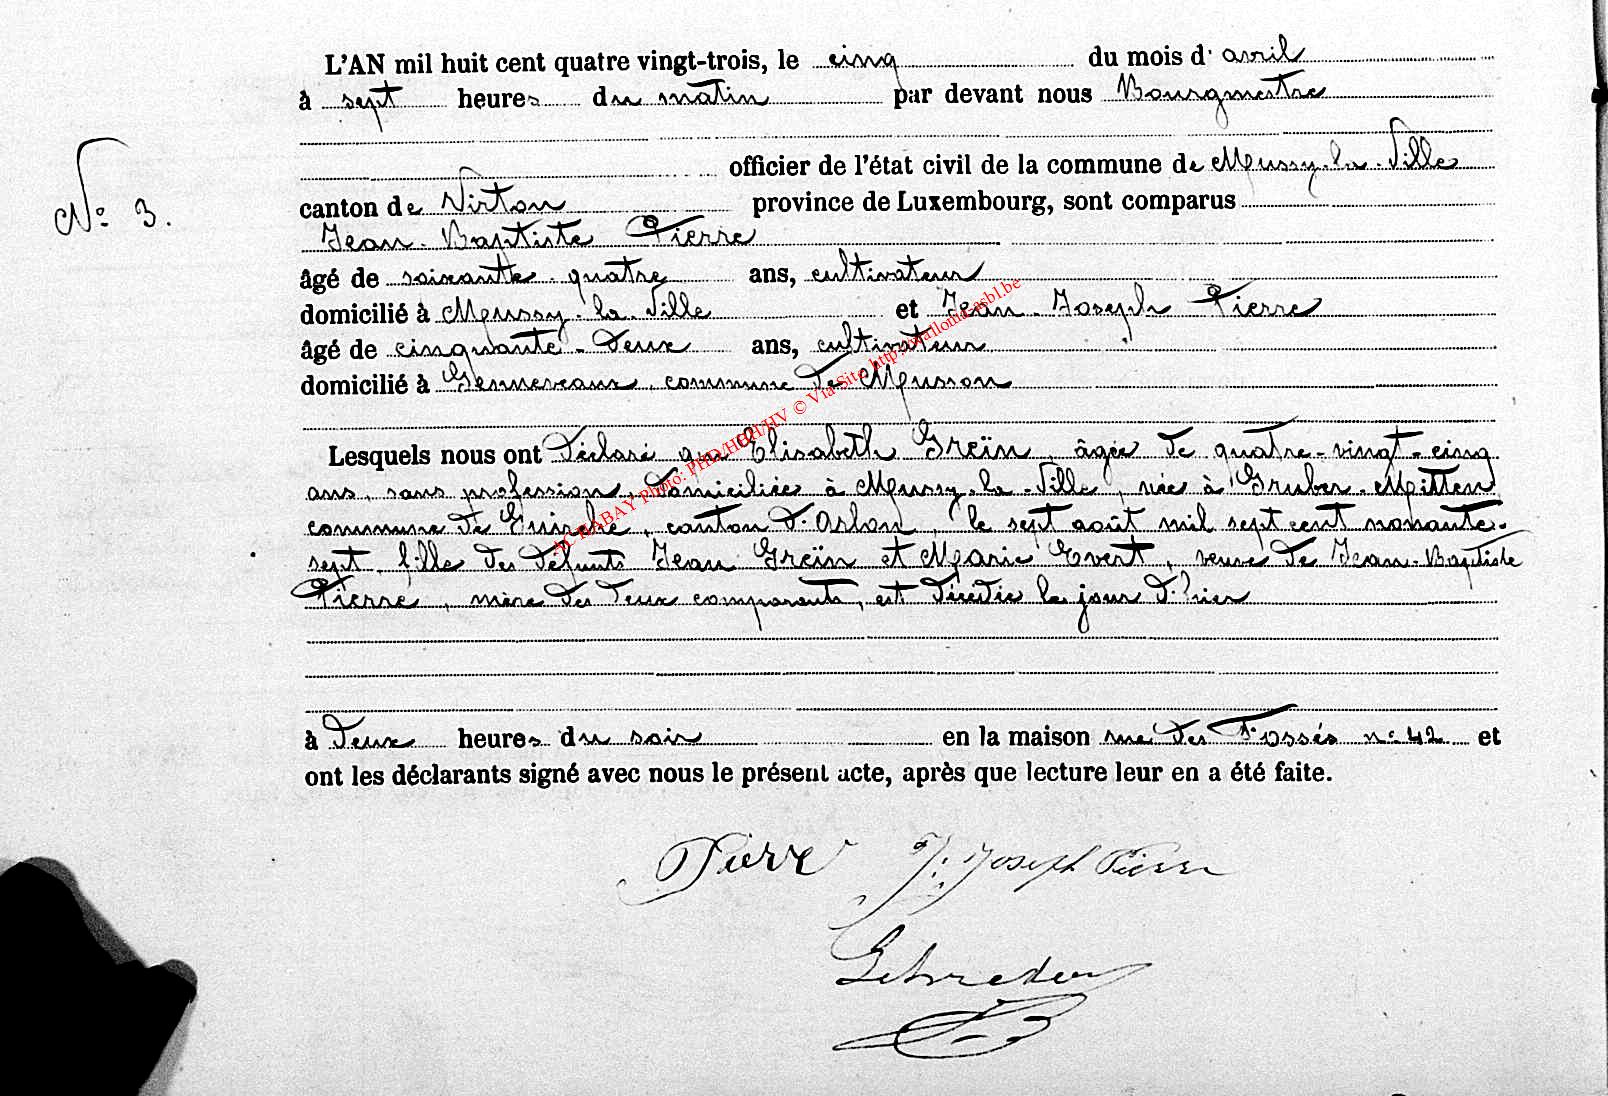 L'AN mil huit cent quatre vingt-trois, le cinq du mois d' avril
à sept heures du matin par devant nous Bourgmestre
officier de l'état civil de la commune de Mussy-la-Ville
N° 3.
canton de Virton province de Luxembourg, sont comparus
Jean-Baptiste Pierre
âgé de soixante-quatre ans, cultivateur
domicilié à Mussy-la-Ville et Jean-Joseph Pierre
âgé de cinquante-deux ans, cultivateur
domicilié à Gennevaux, commune de Musson
Lesquels nous ont déclaré que Elisabeth Greïn, âgée de quatre-vingt-cinq
ans, sans profession, domiciliée à Mussy-la-Ville, née à Gruber-Mitten
commune de Guirche, canton d'Arlon, le sept août mil sept cent nonante-
sept, fille des défunts Jean Greïn et Marie Evert, veuve de Jean-Baptiste
Pierre, mère des deux comparants, est décédée le jour d'hier
à deux heures du soir en la maison rue des Fossés n° 42 et
ont les déclarants signé avec nous le présent acte, après que lecture leur en a été faite.
Pierre J. Joseph Pierre
AC BABAY Photo: PHD/HBH/HV © Via Site http://wallonia-asbl.be